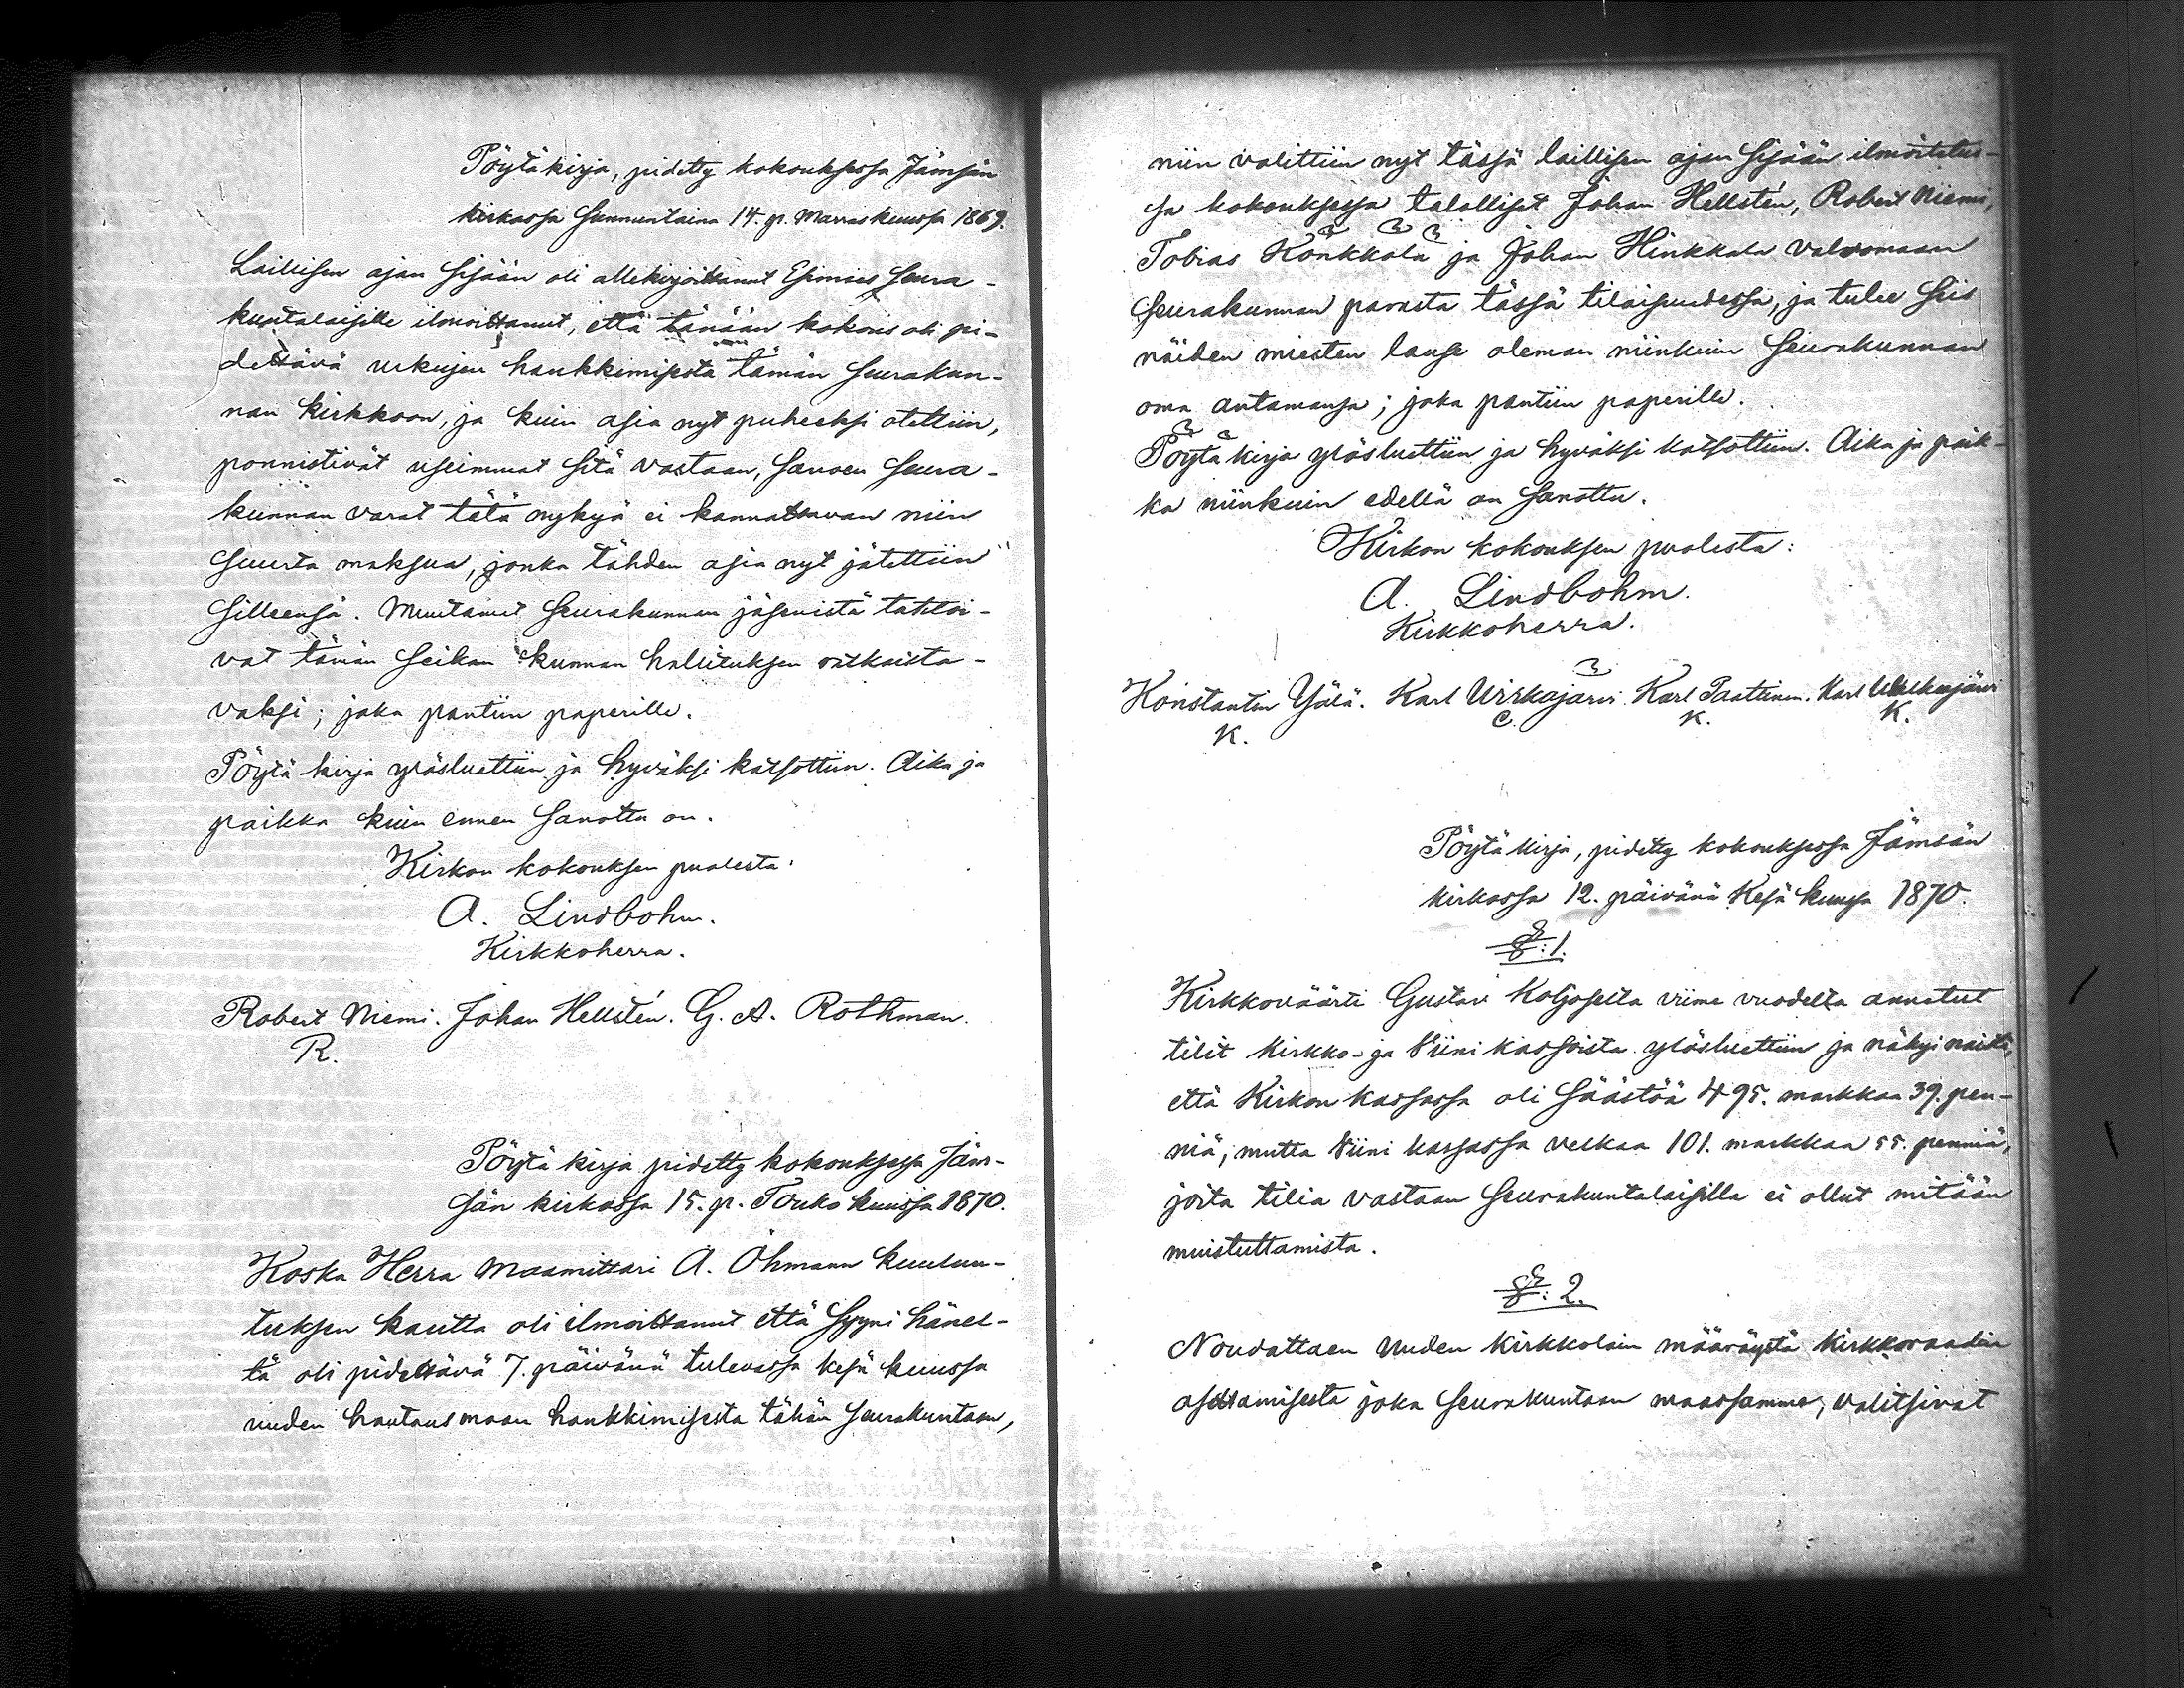 Pöytäkirja, pidetty kokouksessa Jämsän
kirkossa Sunnuntaina 14. p. Marraskuussa 1869.
Laillisen ajan sisään oli allekirjoittanut Esimies seura-
kuntalaisille ilmoittanut, että tänään kokous oli pi-
dettävä urkujen hankkimisesta tämän seurakun-
nan kirkkoon, ja kuin asia nyt puheeksi otettiin,
ponnistivät useimmat sitä vastaan, sanoen seura-
kunnan varat tätä nykyä ei kannattavan niin
suurta maksua, jonka tähden asia nyt jätettiin
sillensä. Muutamat seurakunnan jäsenistä tahtoi-
vat tämän seikan kunnan hallituksen ratkaista-
vaksi; joka pantiin paperille.
Pöytäkirja ylösluettiin ja hyväksi katsottiin. Aika ja
paikka kuin ennen sanottu on.
Kirkon kokouksen puolesta:
A. Lindbohm.
Kirkkoherra.
Robert Niemi. Johan Hellstén. G. A. Rothman.
R.
Pöytäkirja pidetty kokouksessa Jäm-
sän kirkossa 15. p. Touko kuussa 1870.
Koska Herra Maamittari A. Öhmann kuulu-
tuksen kautta oli ilmoittanut että Syyni hänel-
tä oli pidettävä 7. päivänä tulevassa kesä kuussa
uuden hautausmaan hankkimisesta tähän seurakuntaan,
niin valittiin nyt tässä laillisen ajan sisään ilmoitetus-
sa kokouksessa talolliset Johan Hellstén, Robert Niemi,
Tobias Könkkölä ja Johan Hinkkala valvomaan
seurakunnan parasta tässä tilaisuudessa, ja tulee siis
näiden miesten lause oleman niinkuin seurakunnan
oma antamansa; joka pantiin paperille.
Pöytäkirja ylösluettiin ja hyväksi katsottiin. Aika ja paik-
ka niinkuin edellä on sanottu.
Kirkon kokouksen puolesta:
A. Lindbohm.
Kirkkoherra.
Konstantin Ylä. Karl Virkajärvi. Karl Paattinen. Karl
K. C. K. K.
Pöytäkirja, pidetty kokouksessa Jämsän
kirkossa 12. päivänä Kesä kuussa 1870.
§: 1.
Kirkkoväärti Gustav Koljoselta viime vuodelta annetut
tilit Kirkko- ja Viini kassoista ylösluettiin ja näkyi näistä,
että Kirkon kassassa oli säästöä 495. markkaa 39. pen-
niä, mutta Viini kassassa velkaa 101. markkaa 55. penniä,
joita tiliä vastaan seurakuntalaisilla ei ollut mitään
muistuttamista.
§: 2.
Noudattaen uuden Kirkkolain määräystä Kirkkoraadin
asettamisesta joka seurakuntaan maassamme, valitsivat